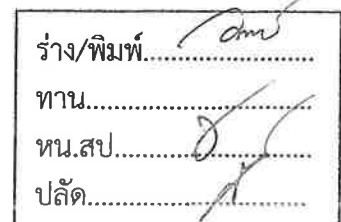 ร่าง/พิมพ์....................
ทาน....................
หน.สป....................
ปลัด....................